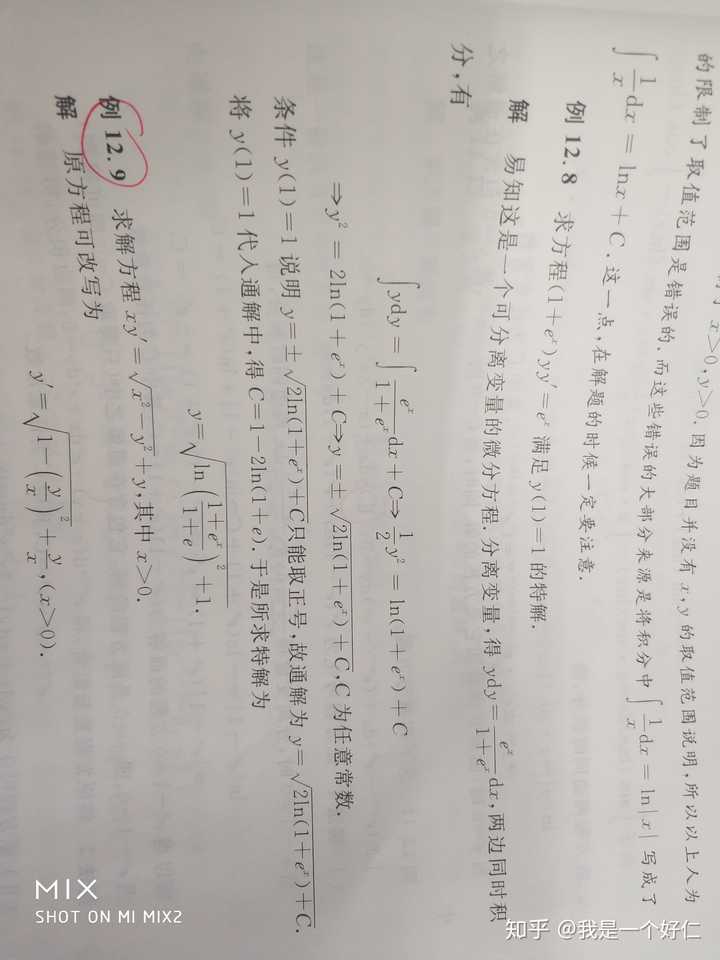 x>0,y>0.因为题目并没有x,y的取值范围说明,所以以上人为
的限制了取值范围是错误的.而这些错误的大部分来源是将积分中∫1/x dx=ln|x|写成了
∫1/x dx=lnx+C.这一点,在解题的时候一定要注意.
例12.8 求方程(1+e^x)yy′=e^x满足y(1)=1的特解.
解 易知这是一个可分离变量的微分方程.分离变量,得ydy=e^x/(1+e^x)dx,两边同时积
分,有
∫ydy=∫e^x/(1+e^x)dx+C⇒1/2y²=ln(1+e^x)+C
⇒y²=2ln(1+e^x)+C⇒y=±√(2ln(1+e^x)+C),C为任意常数.
条件y(1)=1说明y=±√(2ln(1+e^x)+C)只能取正号,故通解为y=√(2ln(1+e^x)+C).
将y(1)=1代入通解中,得C=1-2ln(1+e).于是所求特解为
y=√(ln((1+e^x)/(1+e))²+1).
例12.9 求解方程xy′=√(x²-y²)+y,其中x>0.
解 原方程可改写为
y′=√(1-(y/x)²)+y/x,(x>0).
MIX
SHOT ON MI MIX2
知乎 @我是一个好仁